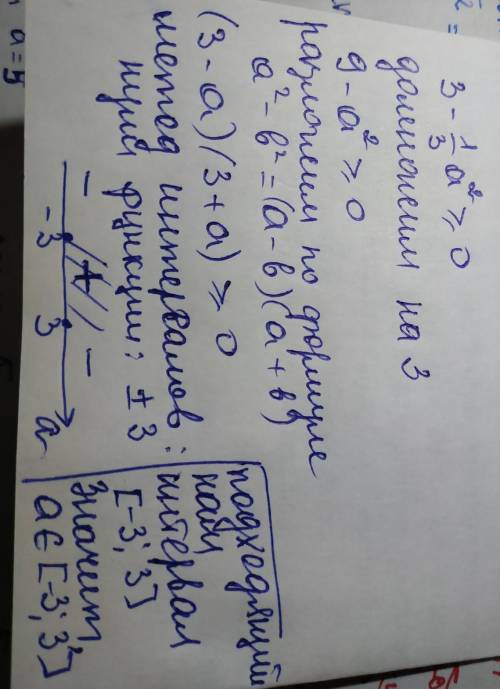 3 - 1/3 a² ≥ 0
домножим на 3
9 - a² ≥ 0
разложим по формуле
a² - b² = (a - b)(a + b)
(3 - a)(3 + a) ≥ 0
метод интервалов:
нули функции: ± 3
- + -
-3 3 a
подходящий
нам
интервал
[-3; 3]
Значит,
a ∈ [-3; 3]
a = 5